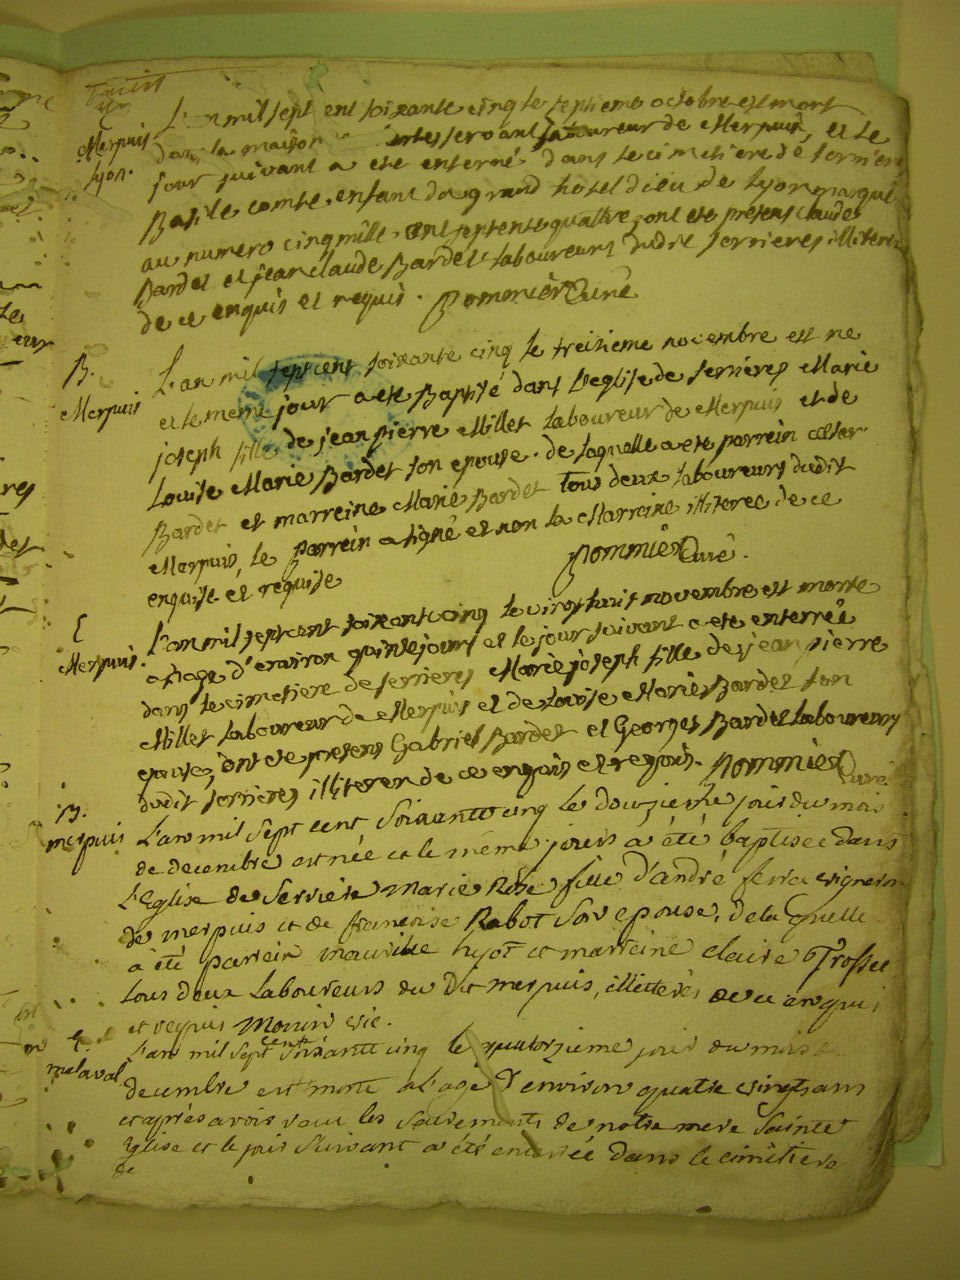 L'an mil sept cent soixante cinq le septieme octobre est mort
Merpuis
dans la maison laboureur de Merpuis, et le
Lyon.
jour suivant a eté enterné dans le cimetiere de serrieres
Basile comte, enfant du grand hotel dieu de Lyon marqué
au numero cinq mille cent septente quattre, y ont eté présens claude
Bardet et jean claude Bardet laboureurs dudit serrieres illiteres
de ce enquis et requis. Pommier Curé
B. L'an mil sept cent soixante cinq le treizieme novembre est ne
Merpuis
et le meme jour a eté Baptisé dans l'eglise de serrieres Marie
joseph fille de jean pierre Millet laboureur de Merpuis et de
Louise Marie Bardet son epouse. de laquelle a eté parrein
Bardet et marreine Marie Bardet tous deux laboureurs dudit
Merpuis, le parrein a signé et non la Marreine illiteree de ce
enquise et requise Pommier Curé.
E L'an mil sept cent soixante cinq le vingt huit novembre est morte
Merpuis.
a l'age d'environ quinze jours et le jour suivant a eté enterrée
dans le cimetiere de serrieres Marie joseph fille de jean pierre
Millet laboureur de Merpuis et de Louise Marie Bardet son
epouse, ont eté presens Gabriel Bardet et Georges Bardet laboureurs
dudit serrieres illiteres de ce enquis et requis. Pommier Curé
B.
merpuis L'an mil sept cent soixante cinq le douzieme jour du mois
de decembre est née et le même jour a été baptisée dans
l'Eglise de Serriere marie Rose fille d'andré ferra vigneron
de merpuis et de françoise Rabot son epouse, de laquelle
a été parrein maurice hyot et marreine claire Trosset
tous deux laboureurs du dit merpuis, illitterés de ce enquis
et requis Monin vic.
E. L'an mil sept cent soixante cinq le quatorzieme jour du mois
malaval
decembre est morte a l'age d'environ quatre vingts ans
et après avoir reçu les sacrements de notre mere Sainte
Eglise et le jour suivant a été enterrée dans le cimetiere
de